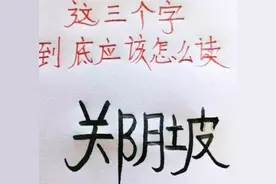 这三个字
到底应该怎么读
关阴坡